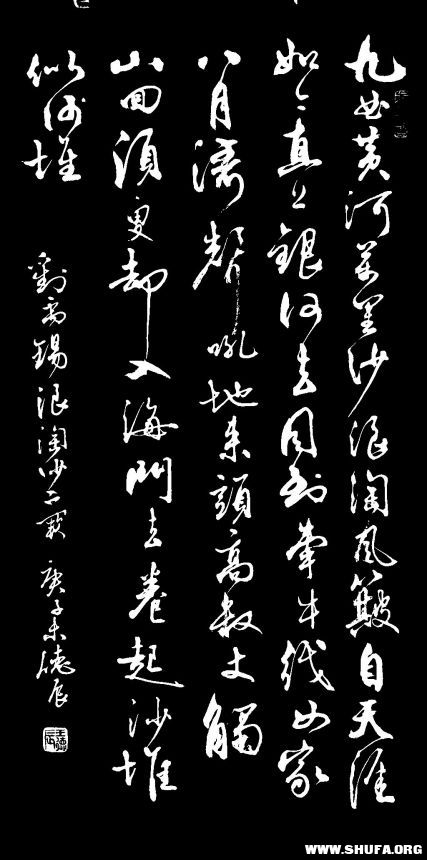 九曲黄河萬里沙浪淘風簸自天涯
如今直上銀河去同到牽牛織女家
八月濤聲吼地来頭高数丈觸
山回須臾却入海門去卷起沙堆
似雪堆
劉禹錫浪淘沙二闋 庚子
WWW.SHUFA.ORG